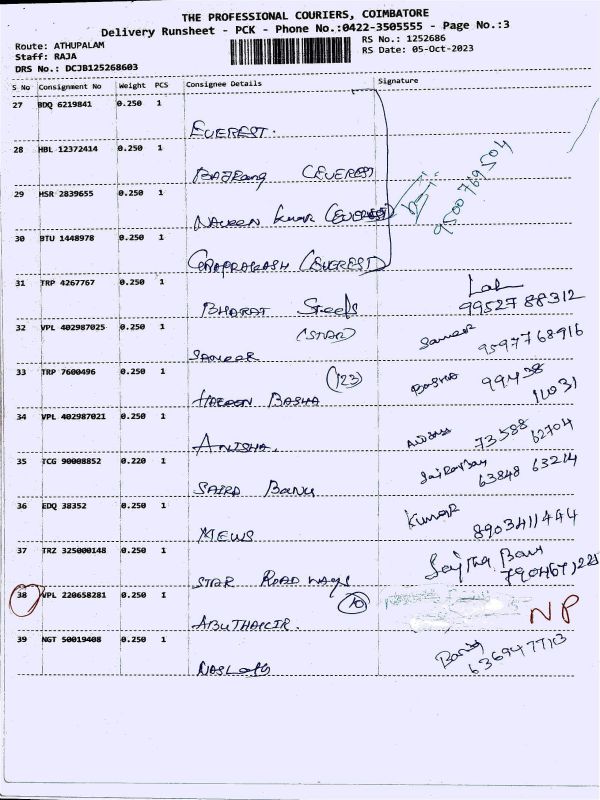 THE PROFESSIONAL COURIERS, COIMBATORE
Delivery Runsheet - PCK - Phone No.:0422-3505555 - Page No.:3
Route: ATHUPALAM
Staff: RAJA
DRS No.: DCJB125268603
RS No.: 1252686
RS Date: 05-Oct-2023
S No Consignment No Weight PCS Consignee Details Signature
27 BDQ 6219841 0.250 1
EVEREST.
28 HBL 12372414 0.250 1
(EVEREST
29 HSR 2839655 0.250 1
NAVEEN Kumar (EVEREST)
9500769504
30 BTU 1448978 0.250 1
(EVEREST)
31 TRP 4267767 0.250 1
BHARAT Steels
9952788312
32 VPL 402987025 0.250 1
(STAR)
SAMEER
Sameer 9597768916
33 TRP 7600496 0.250 1
(123)
HAROON BASHA
Basha 99438
11031
34 VPL 402987021 0.250 1
ANISHA.
73588 62704
35 TCG 90008852 0.220 1
SAIRA Banu
63848 63214
36 EDQ 38352 0.250 1
MEWS
Kumar
8903411444
37 TRZ 325000148 0.250 1
STAR ROAD ways
38 VPL 220658281 0.250 1
10
ABUTHAKIR.
NP
39 NGT 50019408 0.250 1
6369477113